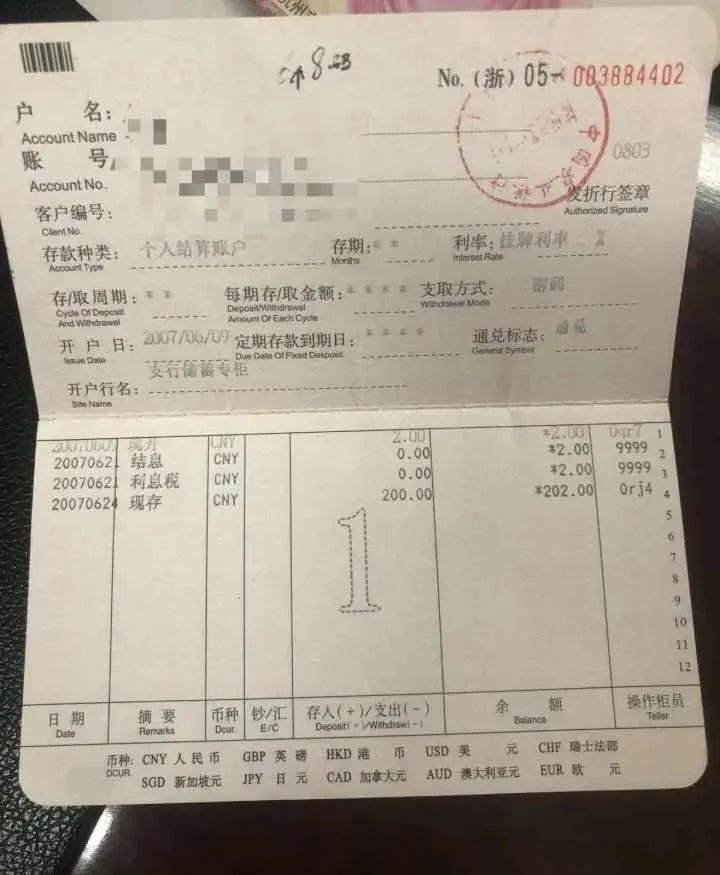 No. (浙) 05- 003884402
户 名:
Account Name
账 号
Account No.
0803
发折行签章
Authorized Signature
客户编号:
Client No.
存款种类: 个人结算账户 存期: * * 利率: 挂牌利率 %
Account Type Months Interest Rate
存/取周期: * * 每期存/取金额: * * * * 支取方式: 密码
Cycle Of Deposit And Withdrawal Deposit/Withdrawal Amount Of Each Cycle Withdrawal Mode
开 户 日: 2007/06/09 定期存款到期日: * * * * 通兑标志: 通兑
Issue Date Due Date Of Fixed Desposit General Symbol
开户行名: 支行储蓄专柜
Site Name
20070609 现开 CNY 2.00 *2.00 0qr7 1
20070621 结息 CNY 0.00 *2.00 9999 2
20070621 利息税 CNY 0.00 *2.00 9999 3
20070624 现存 CNY 200.00 *202.00 0rj4 4
5
6
7
8
9
10
11
12
1
日 期 摘 要 币种 钞/汇 存入(+)/支出(-) 余 额 操作柜员
Date Remarks Dcur. E/C Deposit(+)/Withdraw(-) Balance Teller
币种: CNY 人 民 币 GBP 英 磅 HKD 港 币 USD 美 元 CHF 瑞士法郎
DCUR. SGD 新加坡元 JPY 日 元 CAD 加拿大元 AUD 澳大利亚元 EUR 欧 元